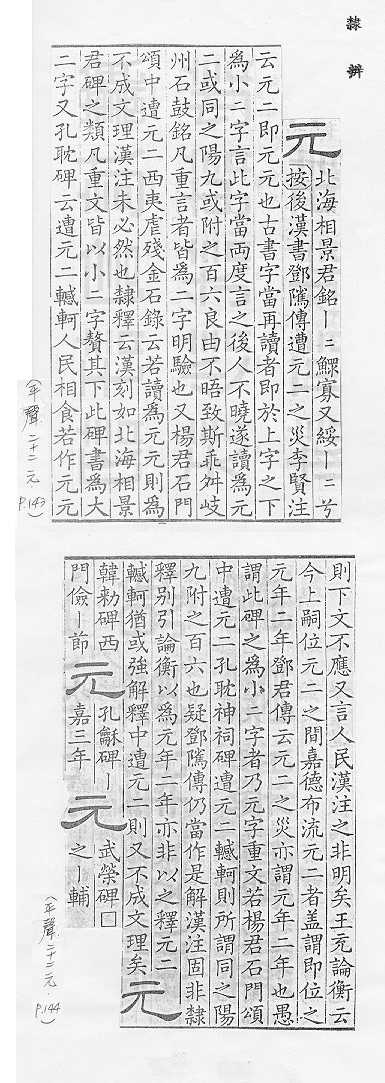 隸辨
元
北海相景君銘丨二鰥寡又綏丨二兮
按後漢書鄧騭傳遭元二之災李賢注
云元二即元元也古書字當再讀者即於上字之下
為小二字言此字當兩度言之後人不曉遂讀為元
二或同之陽九或附之百六良由不晤致斯乖舛岐
州石鼓銘凡重言者皆為二字明驗也又楊君石門
頌中遭元二西夷虐殘金石錄云若讀為元元則為
不成文理漢注未必然也隸釋云漢刻如北海相景
君碑之類凡重文皆以小二字贅其下此碑書為大
二字又孔耽碑云遭元二轗軻人民相食若作元元
(平聲二十二元 P.143)
則下文不應又言人民漢注之非明矣王充論衡云
今上嗣位元二之間嘉德布流元二者盖謂即位之
元年二年鄧君傳云元二之災亦謂元年二年也愚
謂此碑之為小二字者乃元字重文若楊君石門頌
中遭元二孔耽神祠碑遭元二轗軻則所謂同之陽
九附之百六也疑鄧騭傳仍當作是解漢注固非隸
釋別引論衡以為元年二年亦非以之釋元二
轗軻猶或強解釋中遭元二則又不成文理矣
元
韓勑碑西
門儉丨節
元
孔龢碑丨
嘉三年
元
武榮碑□
之丨輔
(平聲二十二元 P.144)